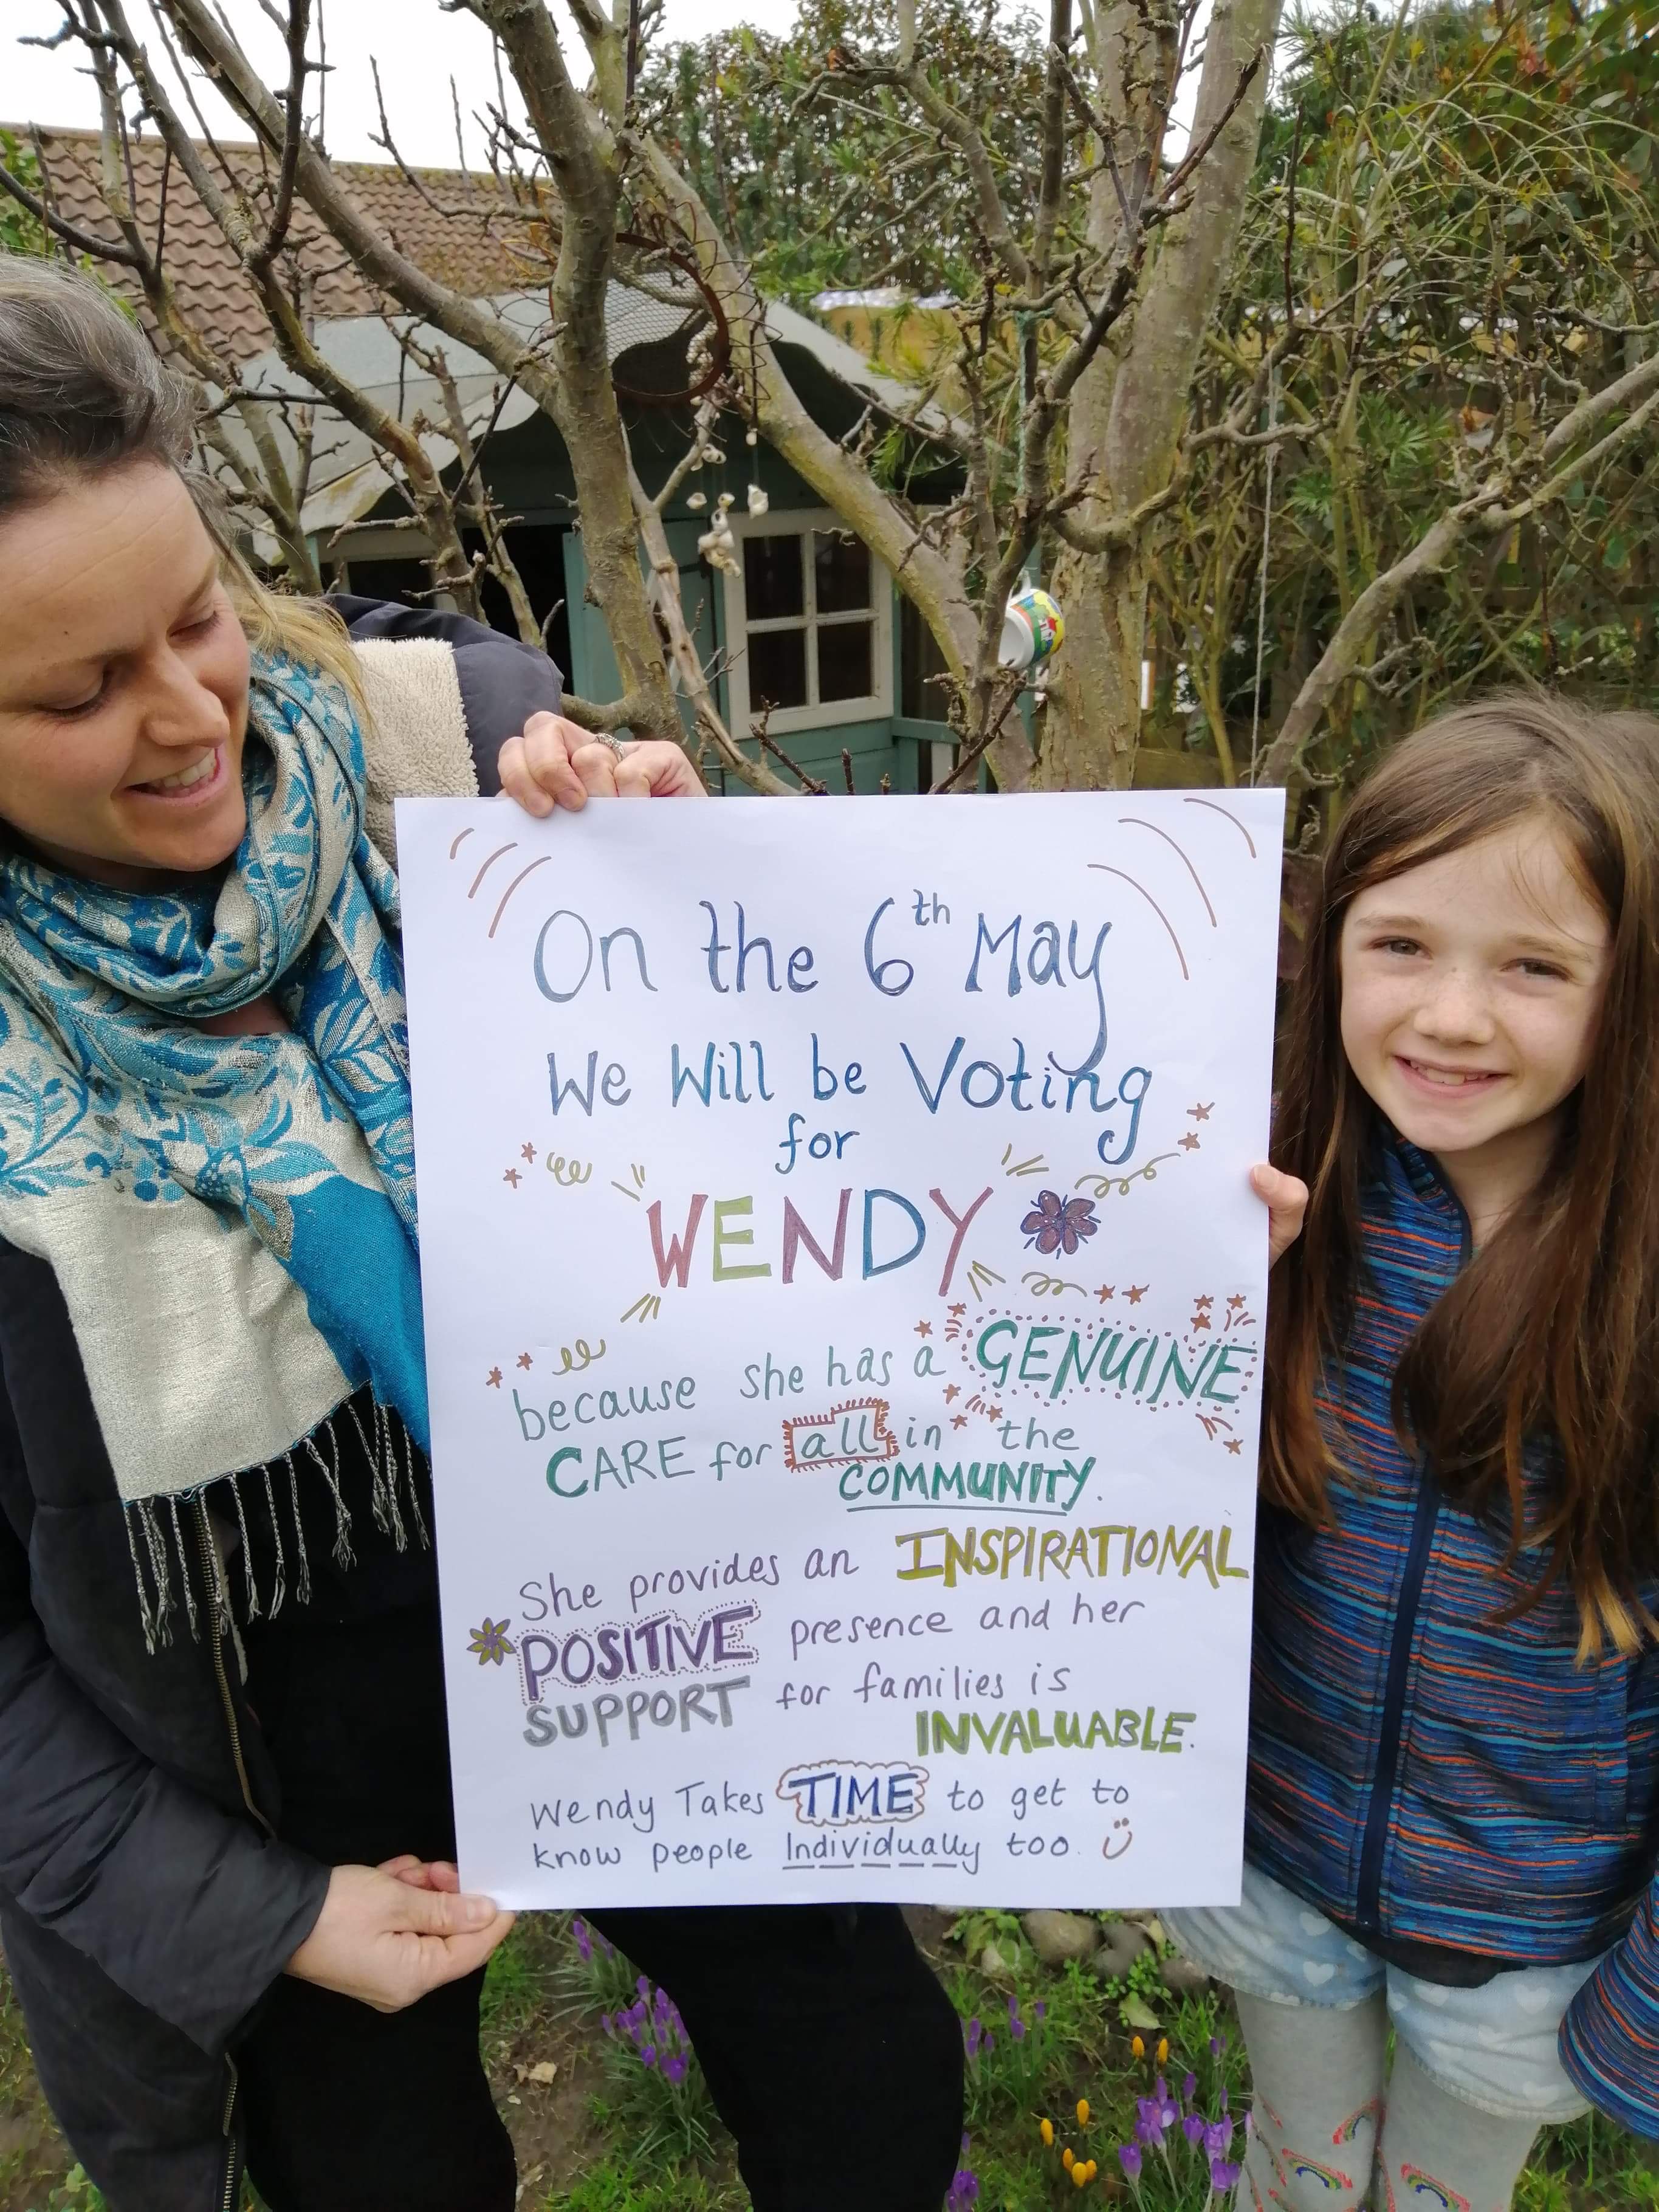 On the 6th May
We Will be Voting
for
WENDY
because she has a GENUINE
CARE for all in the
COMMUNITY.
She provides an INSPIRATIONAL
POSITIVE presence and her
SUPPORT for families is
INVALUABLE.
Wendy Takes TIME to get to
know people Individually too.